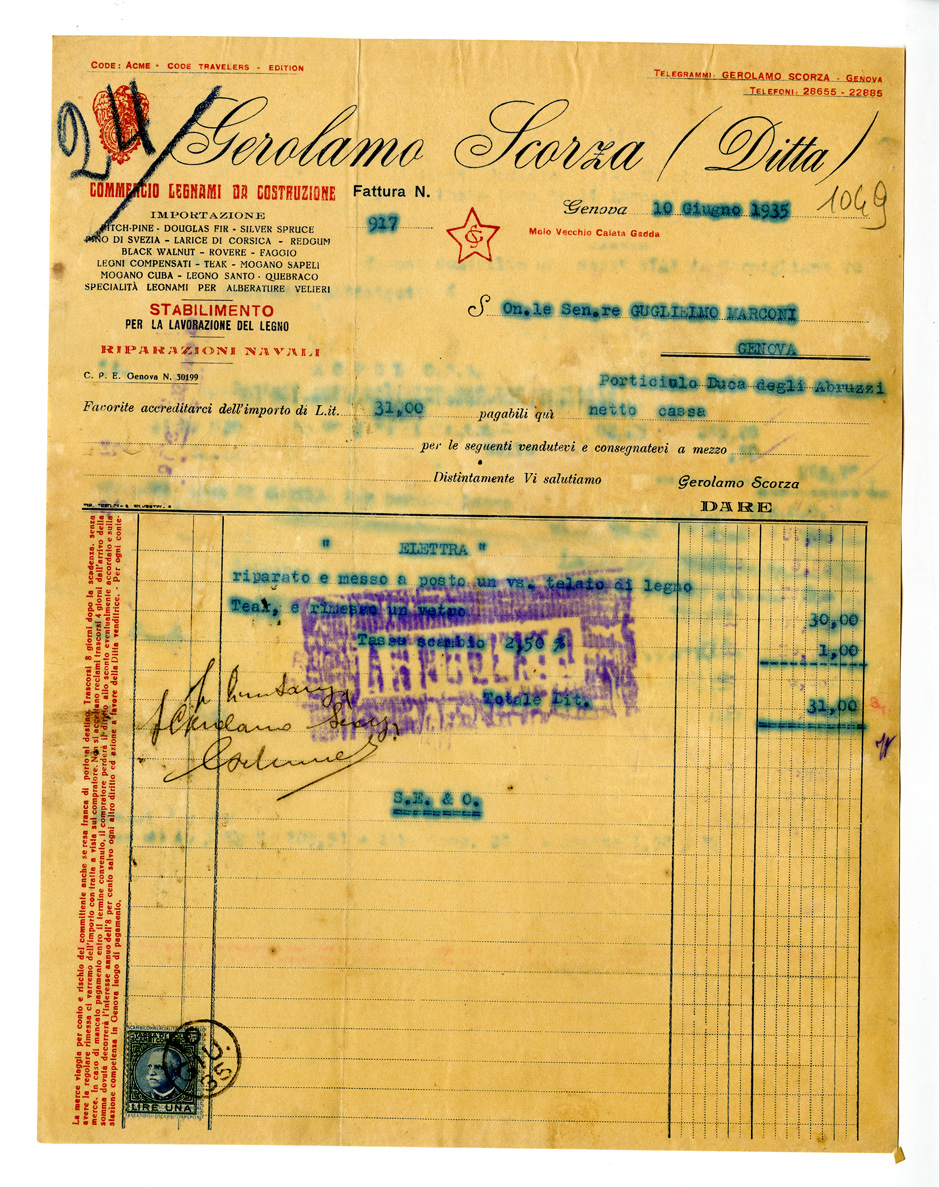 CODE: ACME - CODE TRAVELERS - EDITION
TELEGRAMMI: GEROLAMO SCORZA - GENOVA
TELEFONI: 28655 - 22885
24
Gerolamo Scorza (Ditta)
COMMERCIO LEGNAMI DA COSTRUZIONE
Fattura N.
917
Genova 10 Giugno 1935
1049
Molo Vecchio Calata Gadda
IMPORTAZIONE
PITCH-PINE - DOUGLAS FIR - SILVER SPRUCE
PINO DI SVEZIA - LARICE DI CORSICA - REDGUM
BLACK WALNUT - ROVERE - FAGGIO
LEGNI COMPENSATI - TEAK - MOGANO SAPELI
MOGANO CUBA - LEGNO SANTO - QUEBRACO
SPECIALITÀ LEGNAMI PER ALBERATURE VELIERI
STABILIMENTO
PER LA LAVORAZIONE DEL LEGNO
RIPARAZIONI NAVALI
C. P. E. Genova N. 30199
S On.le Sen.re GUGLIELMO MARCONI
GENOVA
Porticiulo Duca degli Abruzzi
Favorite accreditarci dell'importo di L.it. 31,00 pagabili quì netto cassa
per le seguenti vendutevi e consegnatevi a mezzo
Distintamente Vi salutiamo
Gerolamo Scorza
DARE
" ELETTRA "
riparato e messo a posto un vs. telaio di legno
Teak, e rimesso un vetro 30,00
Tassa scambio 2,50 % 1,00
Totale Lit. 31,00
ANNULLATO
Gerolamo Scorza
S.E. & O.
La merce viaggia per conto e rischio del committente anche se resa franca di porto al destino. Trascorsi 8 giorni dopo la scadenza, senza
avere la regolare rimessa ci varremo dell'importo con tratta a vista sul compratore. Non si accettano reclami trascorsi 4 giorni dall'arrivo della
merce. In caso di mancato pagamento entro il termine convenuto, il compratore perderà il diritto allo sconto eventualmente accordato e sulla
somma dovuta decorrerà l'interesse annuo dell'8 per cento salvo ogni altro diritto ed azione a favore della Ditta venditrice. - Per ogni conte-
stazione competenza in Genova luogo di pagamento.
LIRE UNA